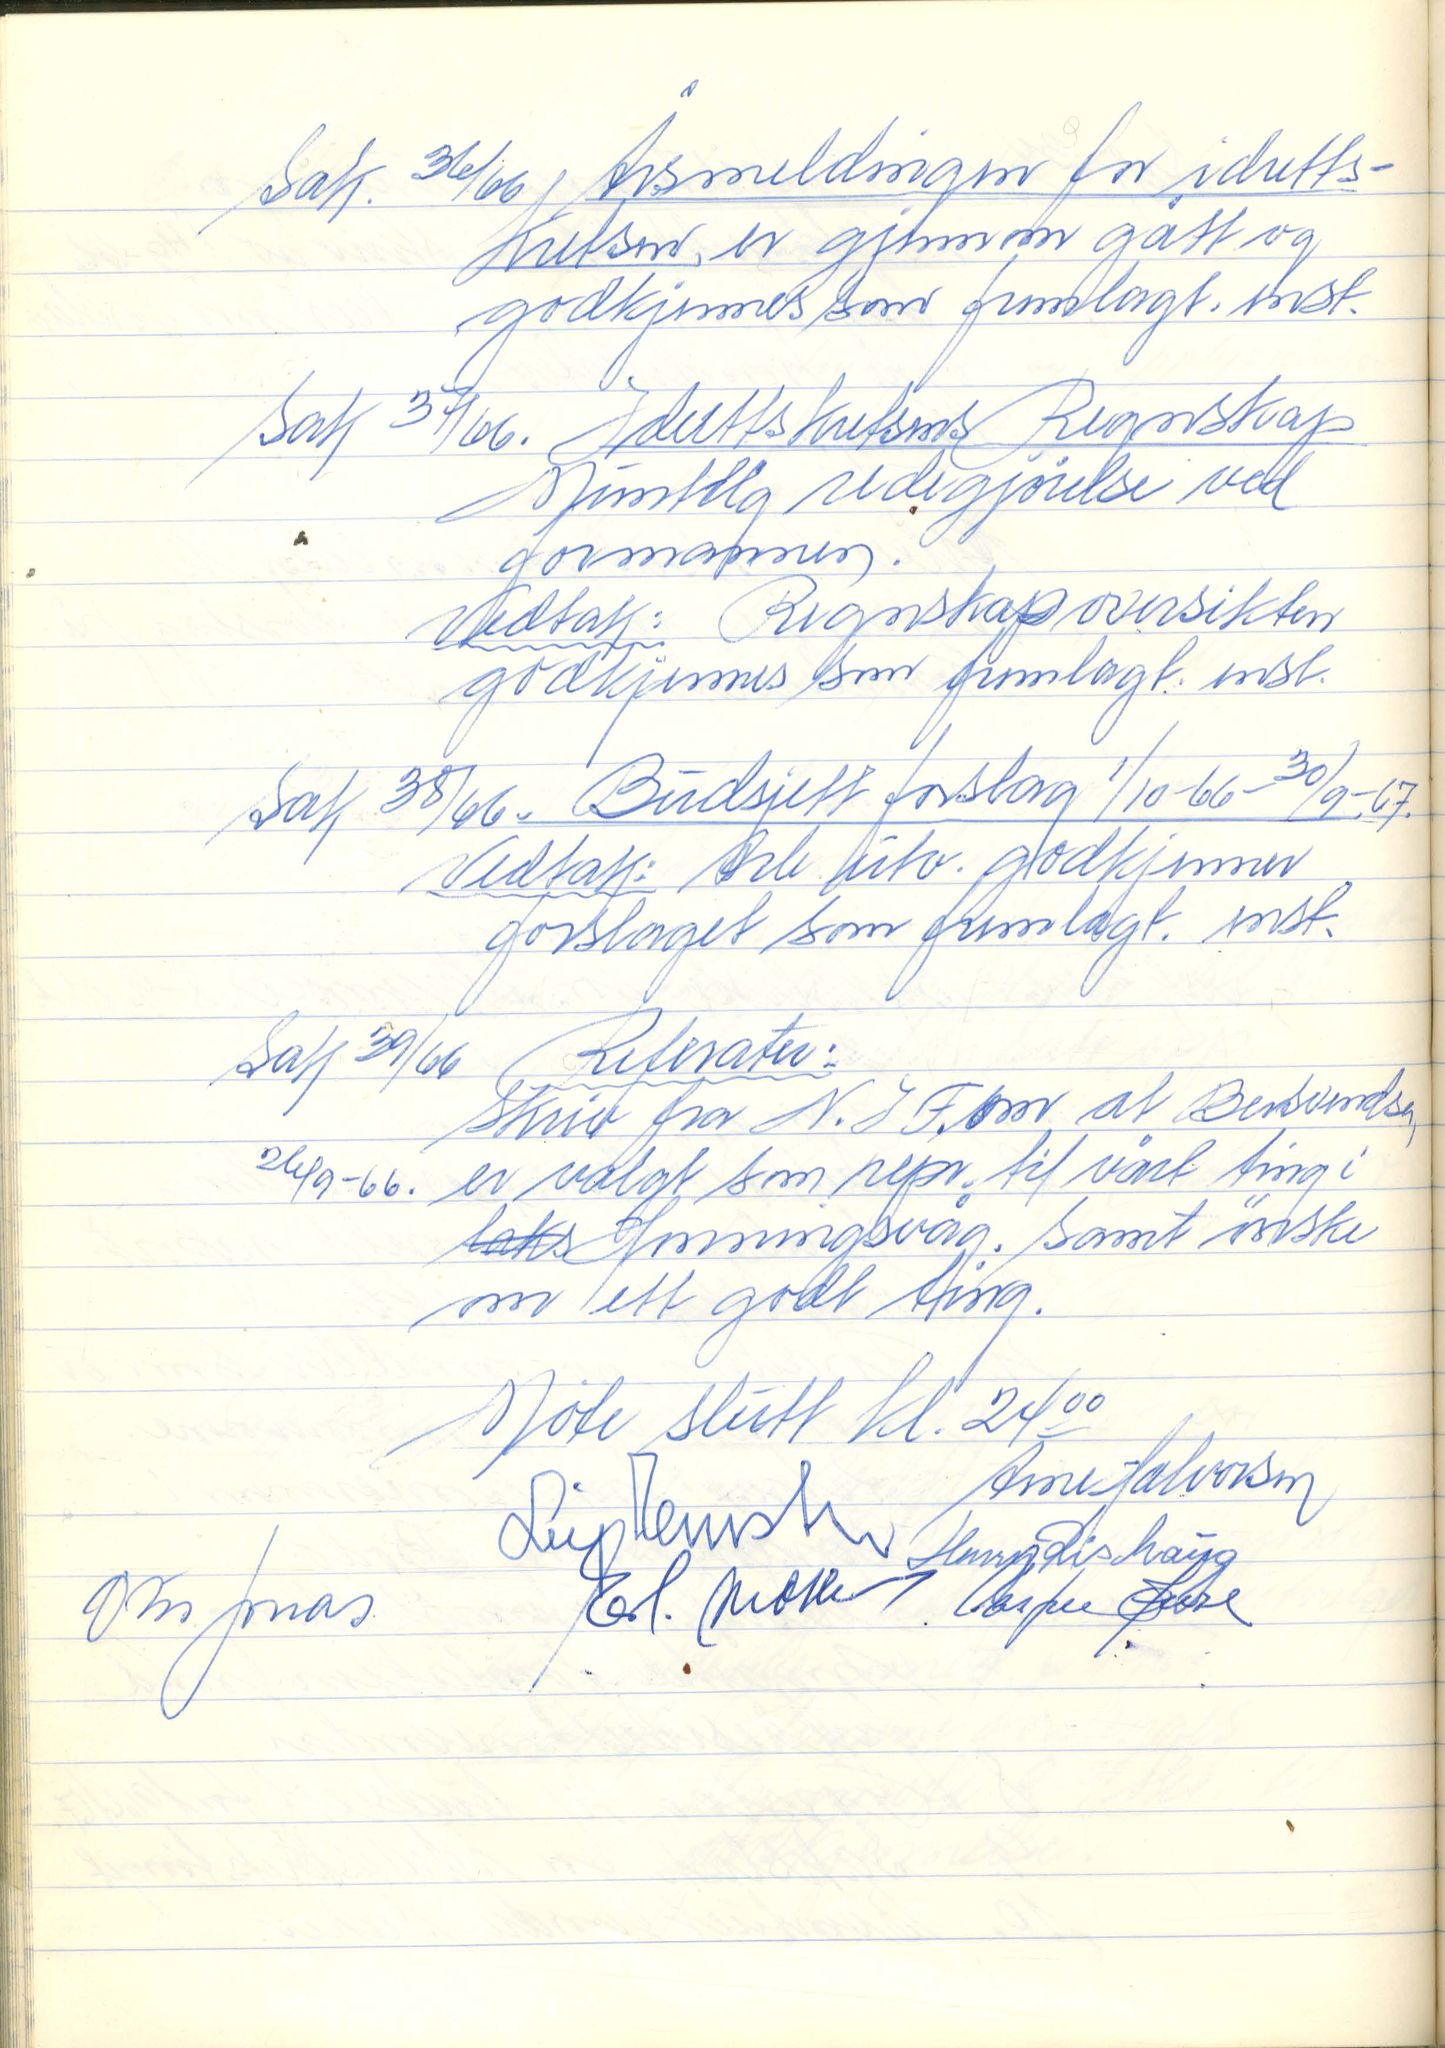 Sak. 36/66, Årsmeldingen for idretts-
kretsen, er gjennom gått og
godkjennes som fremlagt. enst.
Sak 37/66. Idrettskretsens Regnskap
Muntlig redegjörelse ved
formannen.
Vedtak: Regnskapoversikten
godkjennes som fremlagt. enst.
Sak 38/66. Budsjett forslag 1/10-66-30/9-67.
Vedtak: Arb. utv. godkjenner
forslaget som fremlagt. enst.
Sak 39/66 Referater:
Skriv fra N.I.F. om at Bersvendsen,
26/9-66. er valgt som repr. til vårt ting i
Honningsvåg. Samt önske
om ett godt ting.
Möte slutt kl. 24⁰⁰
Arne Halvorsen
Leif
Henry Lishaug
Jonas
Erl. Casper